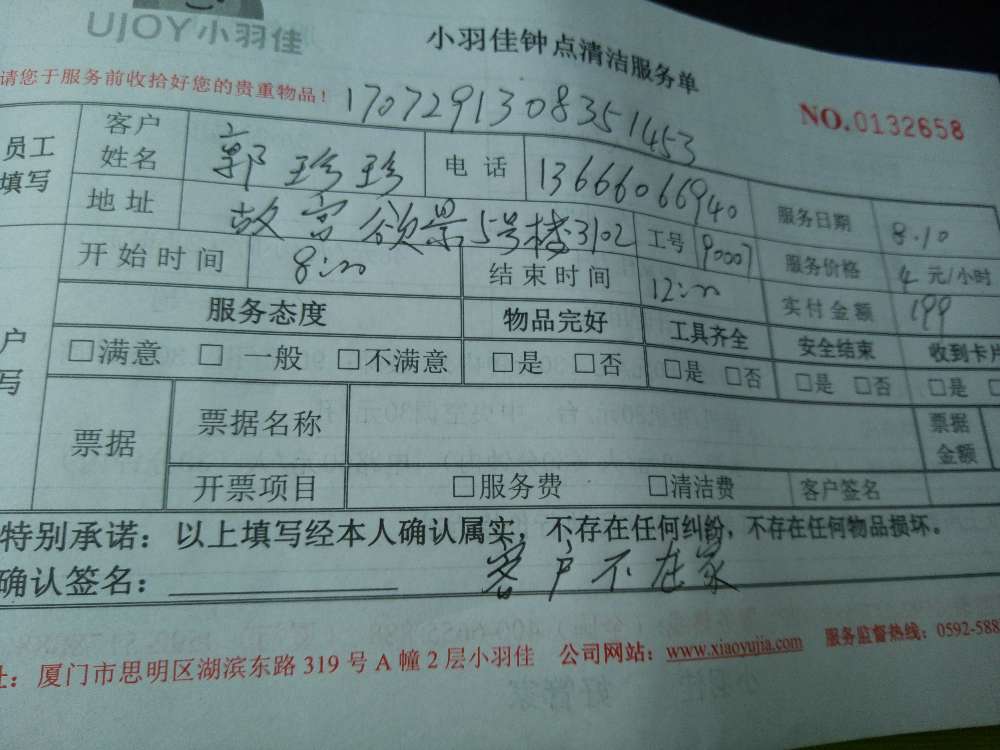 UJOY小羽佳
小羽佳钟点清洁服务单
请您于服务前收拾好您的贵重物品！
NO.0132658
1707291308351453
员工填写 客户姓名 郭珍珍 电话 13666066940 服务日期 8.10
地址 故宫欲景5号楼3102 工号 90007 服务价格 4元/小时
开始时间 8:00 结束时间 12:00 实付金额 199
服务态度 物品完好 工具齐全 安全结束 收到卡片
□满意 □一般 □不满意 □是 □否 □是 □否 □是 □否 □是
户写
票据 票据名称 票据金额
开票项目 □服务费 □清洁费 客户签名
特别承诺：以上填写经本人确认属实，不存在任何纠纷，不存在任何物品损坏。
确认签名： 客户不在家
址：厦门市思明区湖滨东路319号A幢2层小羽佳 公司网站：www.xiaoyujia.com 服务监督热线：0592-588